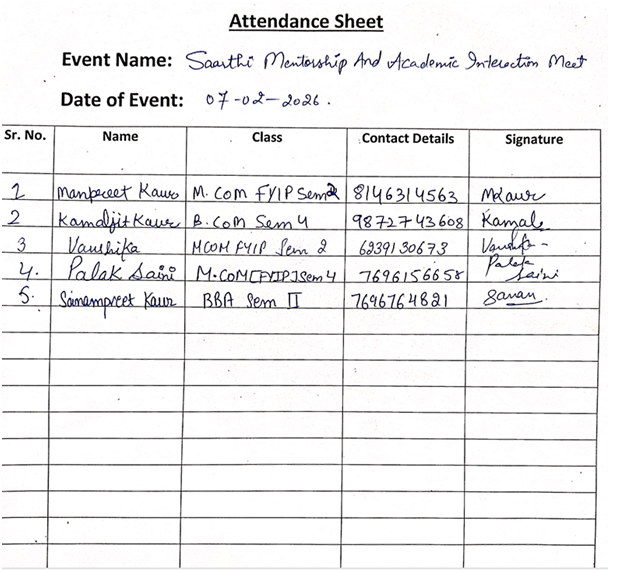 Attendance Sheet
Event Name: Saarthi Mentorship And Academic Interaction Meet
Date of Event: 07-02-2026.
Sr. No. Name Class Contact Details Signature
1 Manpreet Kaur M. Com FYIP Sem 2 8146314563 MKaur
2 Kamaljit Kaur B. Com Sem 4 9872743608 Kamal
3 Vanshika MCOM FYIP Sem 2 6239130673
4. Palak Saini M.COM[FYIP]Sem 4 7696156658 Palak Saini
5. Sanampreet Kaur BBA Sem II 7696764821 Sanam.